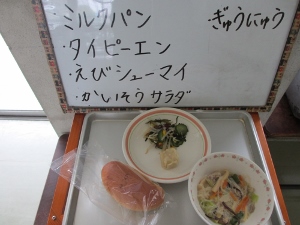 ミルクパン
・ぎゅうにゅう
・タイピーエン
・えびシューマイ
・かいそうサラダ